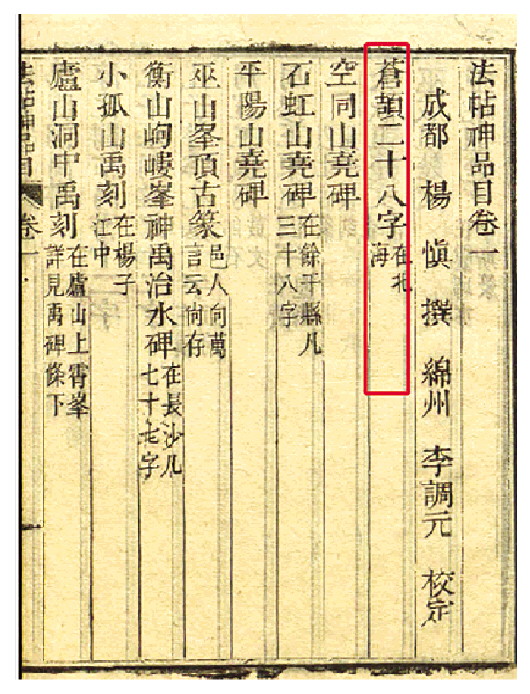 法帖神品目卷一
成都 楊 慎 撰 綿州 李調元 校定
蒼頡二十八字在北海
空同山堯碑
石虹山堯碑在餘干縣凡三十八字
平陽山堯碑
巫山峯頂古篆邑人向萬言云尙存
衡山岣嶁峯神禹治水碑在長沙凡七十七字
小孤山禹刻在楊子江中
廬山洞中禹刻在廬山上霄峯詳見禹碑條下
法帖神品目 卷一